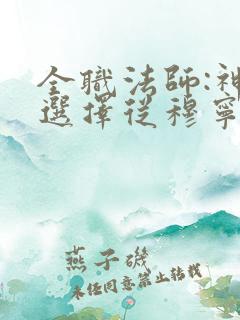 全職法師:神
選擇從穆寧
燕子磯
未任同意禁止轉載